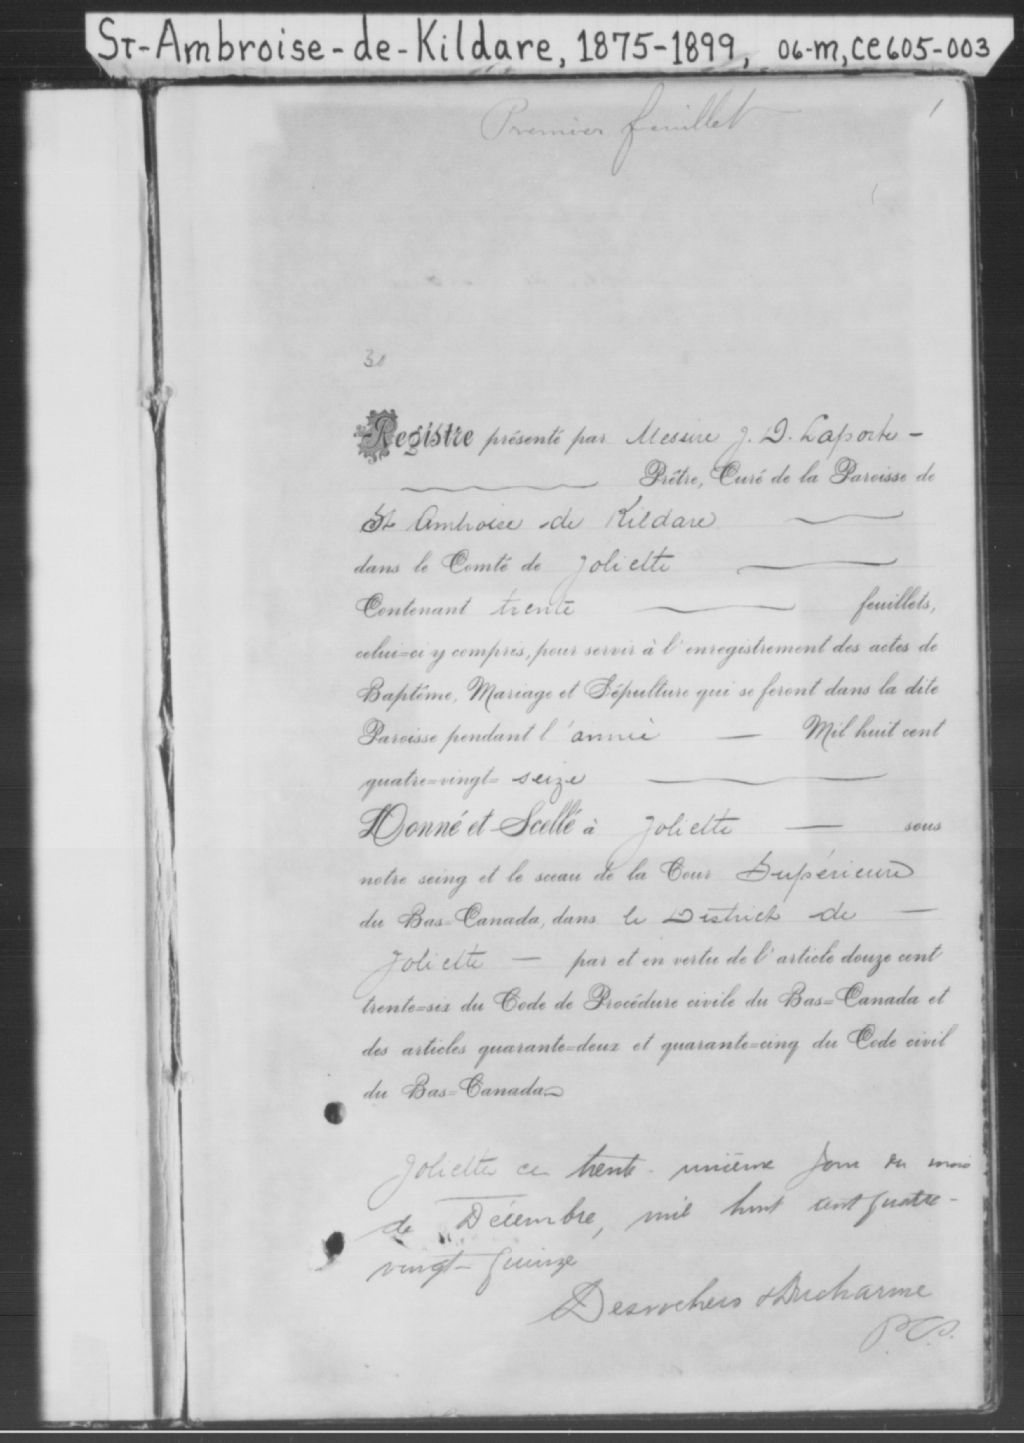 St-Ambroise-de-Kildare, 1875-1899, 06-M, CE605-003
Premier feuillet
1
30
Registre présenté par Messire J. D. Laporte -
Prêtre, Curé de la Paroisse de
St Ambroise de Kildare
dans le Comté de Joliette
Contenant trente feuillets,
celui=ci y compris, pour servir à l'enregistrement des actes de
Baptême, Mariage et Sépulture qui se feront dans la dite
Paroisse pendant l'année — Mil huit cent
quatre=vingt= seize
Donné et Scellé à Joliette — sous
notre seing et le sceau de la Cour Supérieure
du Bas=Canada, dans le District de —
Joliette — par et en vertu de l'article douze cent
trente=six du Code de Procédure civile du Bas=Canada et
des articles quarante=deux et quarante=cinq du Code civil
du Bas=Canada
Joliette ce trente-unième jour du mois
de Décembre, mil huit cent quatre-
vingt-quinze
Desrochers & Ducharme
P.C.S.